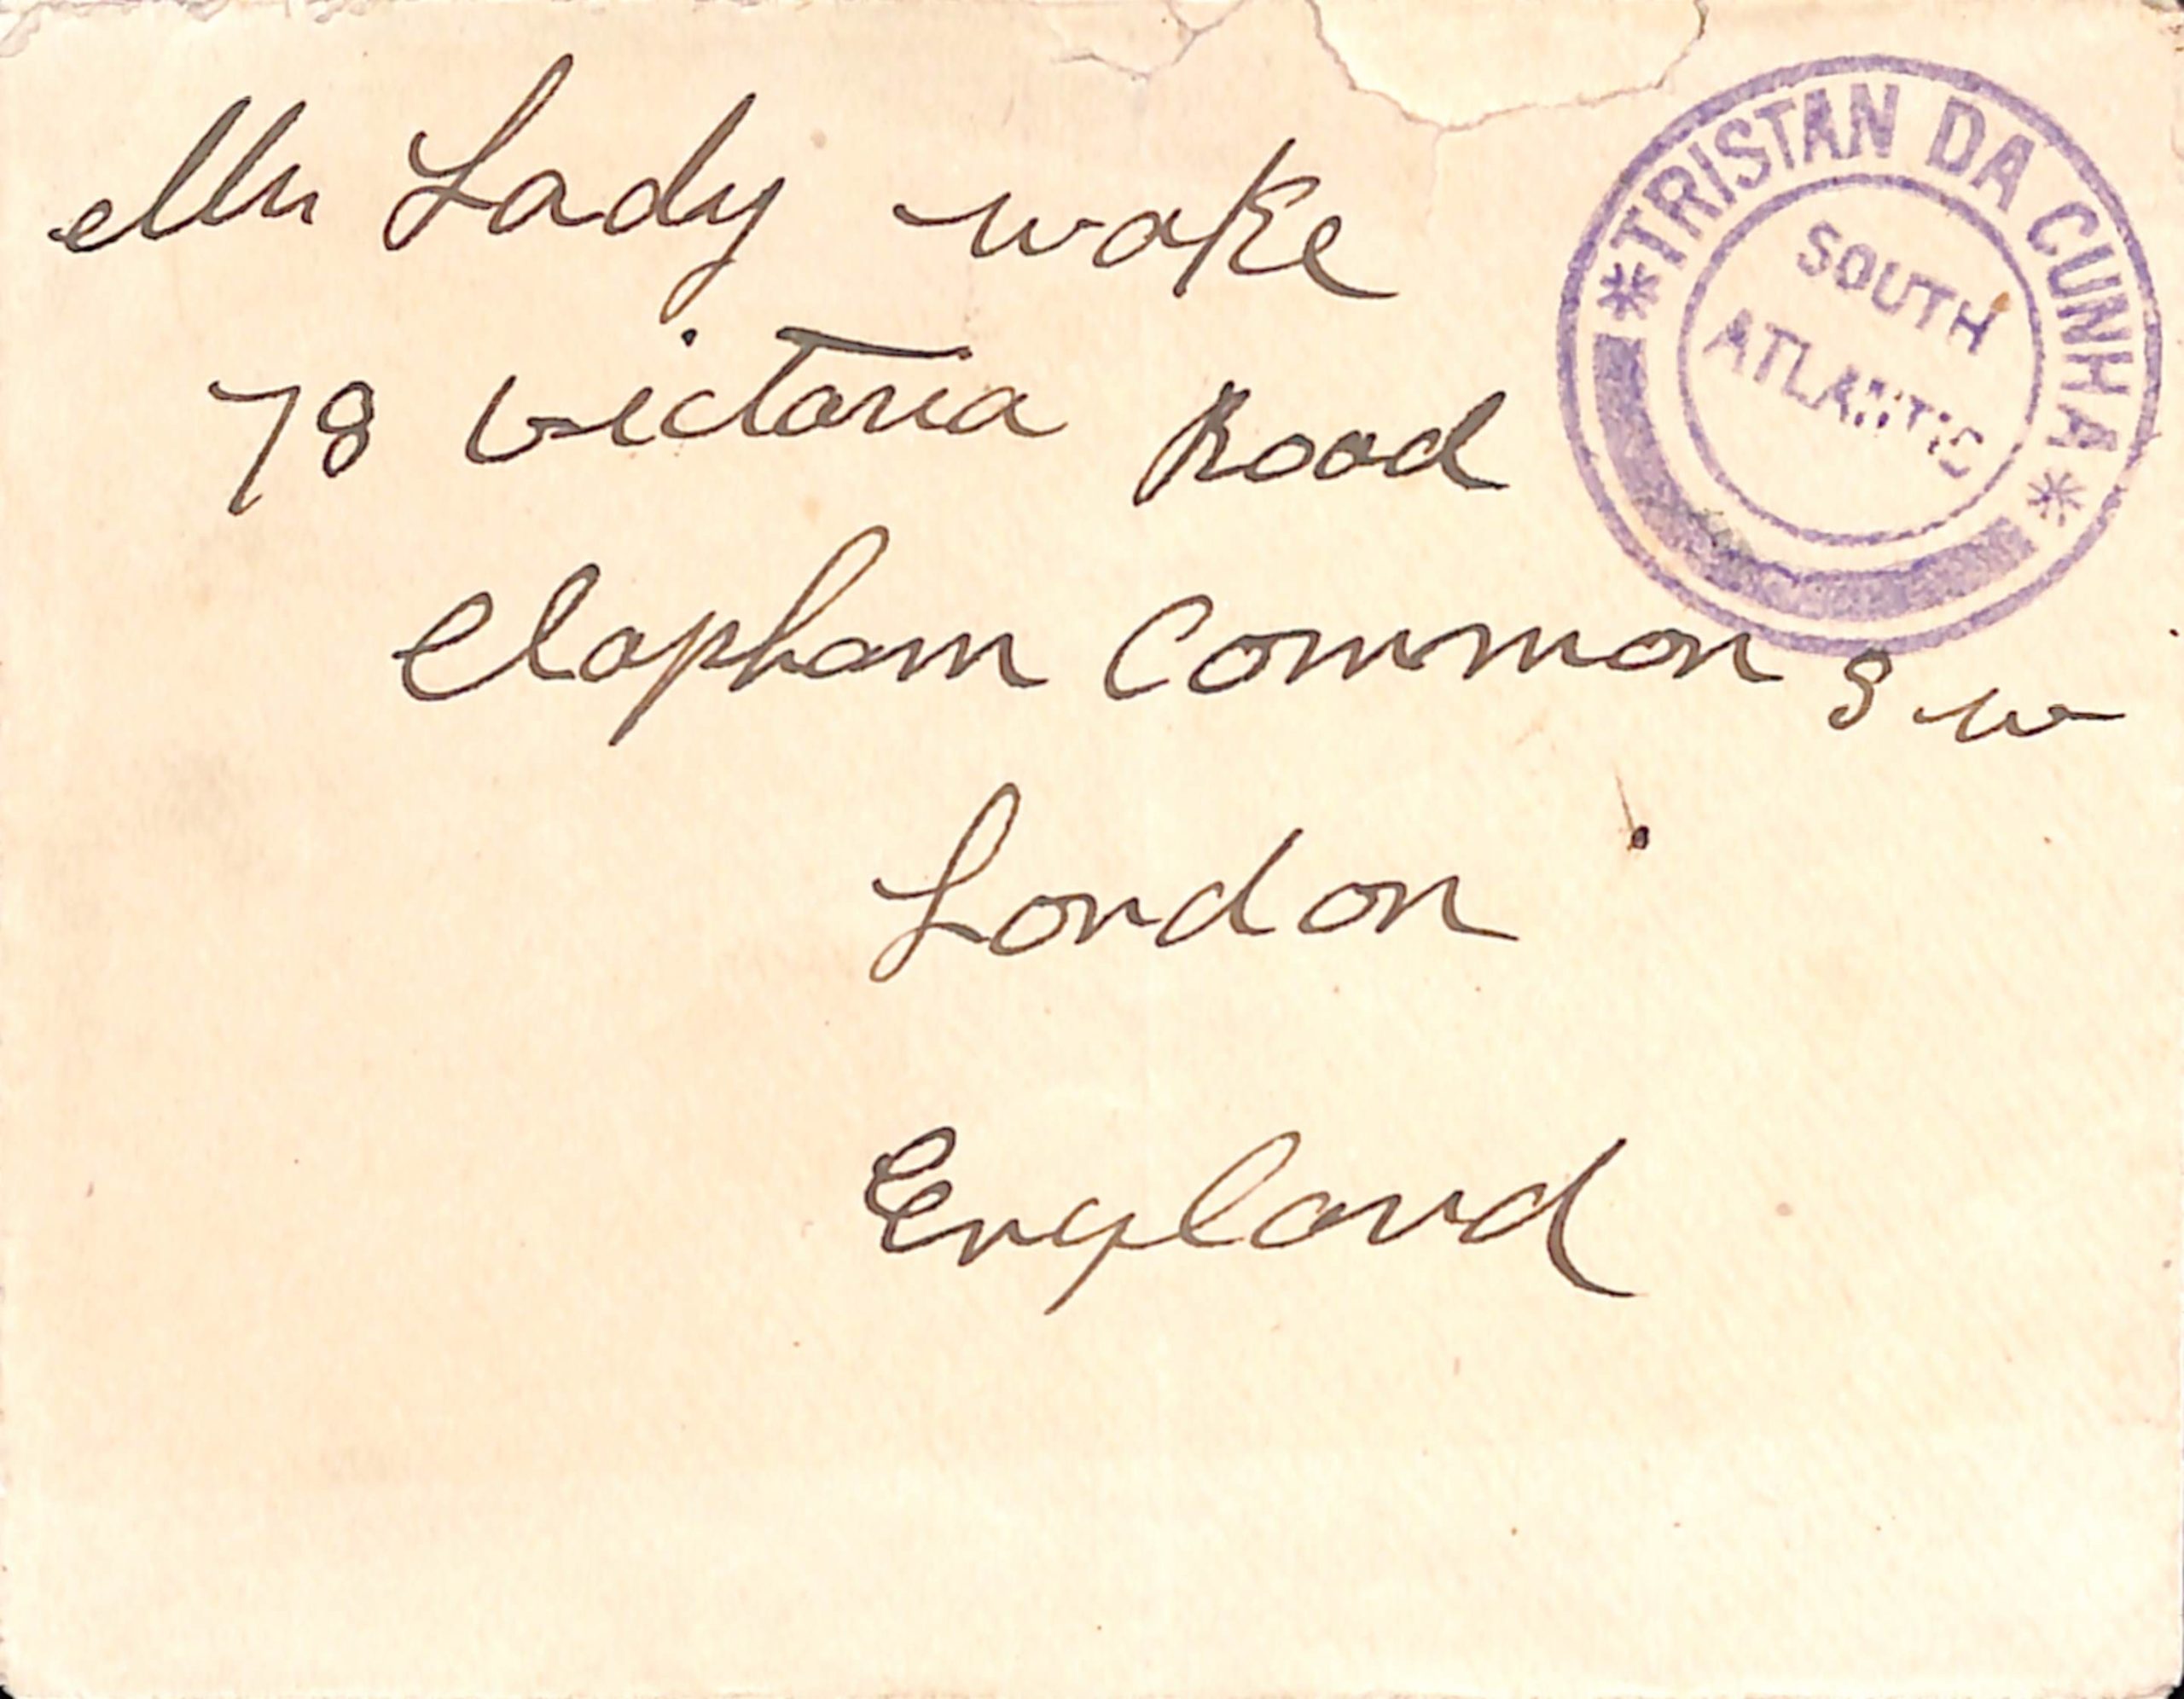 Mr Lady wake
78 Victoria Road
Clapham Common S w
London
England
*TRISTAN DA CUNHA*
SOUTH
ATLANTIC